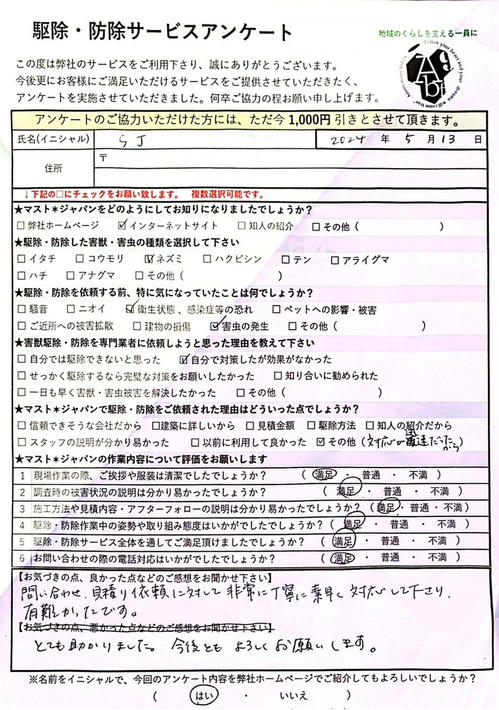 駆除・防除サービスアンケート
地域のくらしを支える一員に
この度は弊社のサービスをご利用下さり、誠にありがとうございます。
今後更にお客様にご満足いただけるサービスをご提供させていただきたく、
アンケートを実施させていただきました。何卒ご協力の程お願い申し上げます。
アンケートのご協力いただけた方には、ただ今1,000円引きとさせて頂きます。
氏名(イニシャル) S J 2024 年 5 月 13 日
住所 〒
↓下記の□にチェックをお願い致します。 複数選択可能です。
★マスト＊ジャパンをどのようにしてお知りになりましたでしょうか？
□弊社ホームページ ☑インターネットサイト □知人の紹介 □その他（ ）
★駆除・防除した害獣・害虫の種類を選択して下さい
□イタチ □コウモリ ☑ネズミ □ハクビシン □テン □アライグマ
□ハチ □アナグマ □その他（ ）
★駆除・防除を依頼する前、特に気になっていたことは何でしょうか？
□騒音 □ニオイ ☑衛生状態、感染症等の恐れ □ペットへの影響・被害
□ご近所への被害拡散 □建物の損傷 ☑害虫の発生 □その他（ ）
★害獣駆除・防除を専門業者に依頼しようと思った理由を教えて下さい
□自分では駆除できないと思った ☑自分で対策したが効果がなかった
□せっかく駆除するなら完璧な対策をお願いしたかった □知り合いに勧められた
□一日も早く害獣・害虫被害を解決したかった □その他（ ）
★マスト＊ジャパンで駆除・防除をご依頼された理由はどういった点でしょうか？
□信頼できそうな会社だから □建築に詳しいから □見積金額 □駆除方法 □知人の紹介だから
□スタッフの説明が分かり易かった □以前に利用して良かった ☑その他（対応が迅速だったから）
★マスト＊ジャパンの作業内容について評価をお願いします
1 現場作業の際、ご挨拶や服装は清潔でしたでしょうか？ （ 満足 ・ 普通 ・ 不満 ）
2 調査時の被害状況の説明は分かり易かったでしょうか？ （ 満足 ・ 普通 ・ 不満 ）
3 施工方法や見積内容・アフターフォローの説明は分かり易かったでしょうか？ （ 満足 ・ 普通 ・ 不満 ）
4 駆除・防除作業中の姿勢や取り組み態度はいかがでしたでしょうか？ （ 満足 ・ 普通 ・ 不満 ）
5 駆除・防除サービス全体を通してご満足頂けましたでしょうか？ （ 満足 ・ 普通 ・ 不満 ）
6 お問い合わせの際の電話対応はいかがでしたでしょうか？ （ 満足 ・ 普通 ・ 不満 ）
【お気づきの点、良かった点などのご感想をお聞かせ下さい】
問い合わせ、見積り依頼に対して非常に丁寧に素早く対応して下さり、
有難かったです。
【お気づきの点、悪かった点などのご感想をお聞かせ下さい】
とても助かりました。今後ともよろしくお願いします。
※名前をイニシャルで、今回のアンケート内容を弊社ホームページでご紹介してもよろしいでしょうか？
（ はい ・ いいえ ）